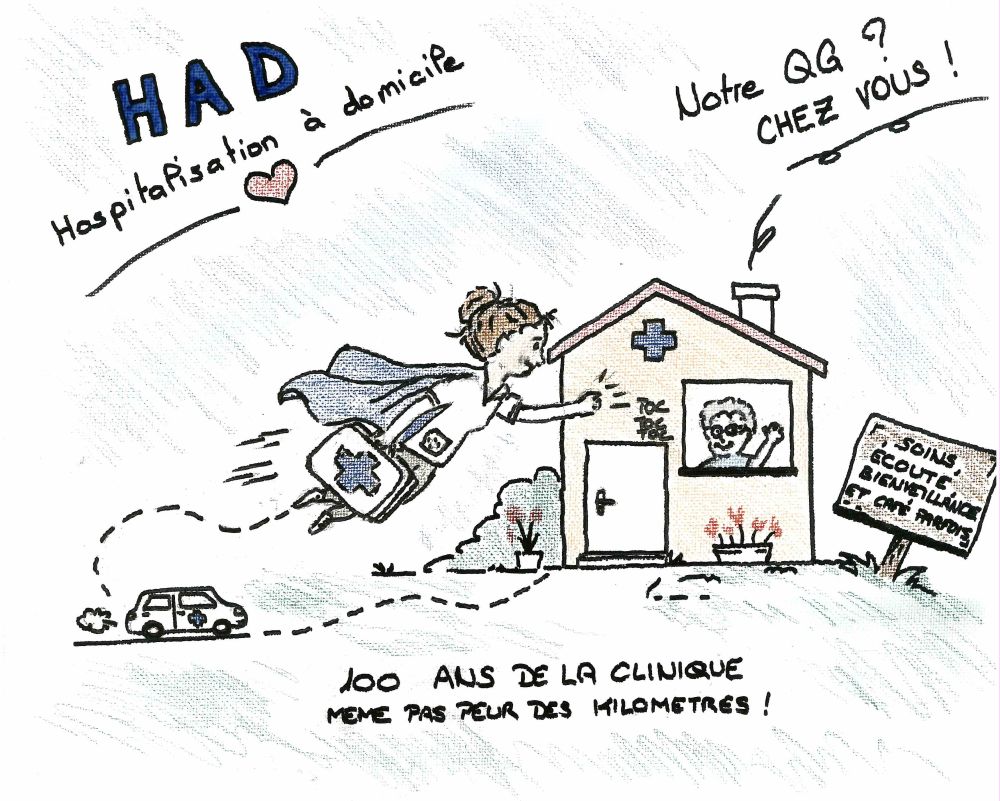 HAD
Hospitalisation à domicile
Notre QG ?
CHEZ VOUS !
TOC
TOC
TOC
SOINS,
ECOUTE,
BIENVEILLANCE
ET CAFÉ PARFOIS
100 ANS DE LA CLINIQUE
MEME PAS PEUR DES KILOMETRES !